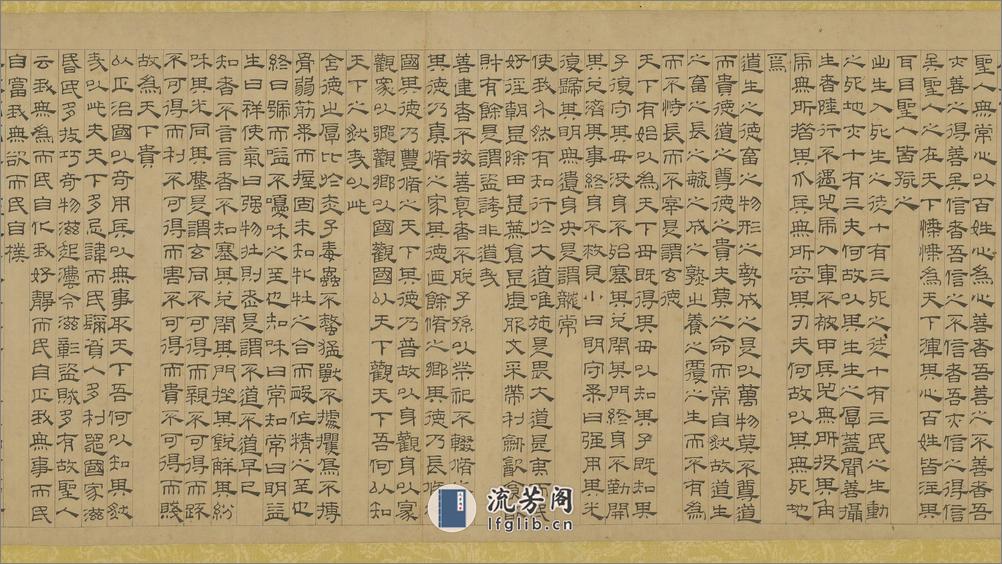 聖人無常心以百姓心為心善者吾善之不善者吾
亦善之得善矣信者吾信之不信者吾亦信之得信
矣聖人之在天下惵惵為天下渾其心百姓皆注其
耳目聖人皆孩之
出生入死生之徒十有三死之徒十有三民之生動
之死地亦十有三夫何故以其生生之厚蓋聞善攝
生者陸行不遇兕虎入軍不被甲兵兕無所投其角
虎無所措其爪兵無所容其刃夫何故以其無死地
焉
道生之德畜之物形之勢成之是以萬物莫不尊道
而貴德道之尊德之貴夫莫之命而常自然故道生
之畜之長之毓之成之熟之養之覆之生而不有為
而不恃長而不宰是謂玄德
天下有始以為天下母既得其母以知其子既知其
子復守其母沒身不殆塞其兌閉其門終身不勤開
其兌濟其事終身不救見小曰明守柔曰强用其光
復歸其明無遺身央是謂襲常
使我介然有知行於大道唯施是畏大道甚夷
好徑朝甚除田甚蕪倉甚虛服文采帶利劍厭飲食
財有餘是謂盜誇非道哉
善建者不拔善裒者不脫子孫以祭祀不輟脩之
其德乃真脩之家其德廼餘脩之鄉其德乃長脩
國其德乃豐脩之天下其德乃普故以身觀身以家
觀家以鄉觀鄉以國觀國以天下觀天下吾何以知
天下之然哉以此
含德之厚比於赤子毒蟲不螫猛獸不據攫鳥不搏
骨弱筋柔而握固未知牝牡之合而㕙作精之至也
終日號而嗌不嗄味之至也知味曰常知常曰明益
生曰祥使氣曰强物壯則老是謂不道不道早已
知者不言言者不知塞其兌閉其門挫其銳解其紛
味其光同其塵是謂玄同不可得而親不可得而踈
不可得而利不可得而害不可得而貴不可得而賤
故為天下貴
以正治國以奇用兵以無事取天下吾何以知其然
哉以此夫天下多忌諱而民彌貧人多利器國家滋
昏民多技巧奇物滋起法令滋彰盜賊多有故聖人
云我無為而民自化我好靜而民自正我無事而民
自富我無欲而民自樸
流芳阁
lfglib.cn